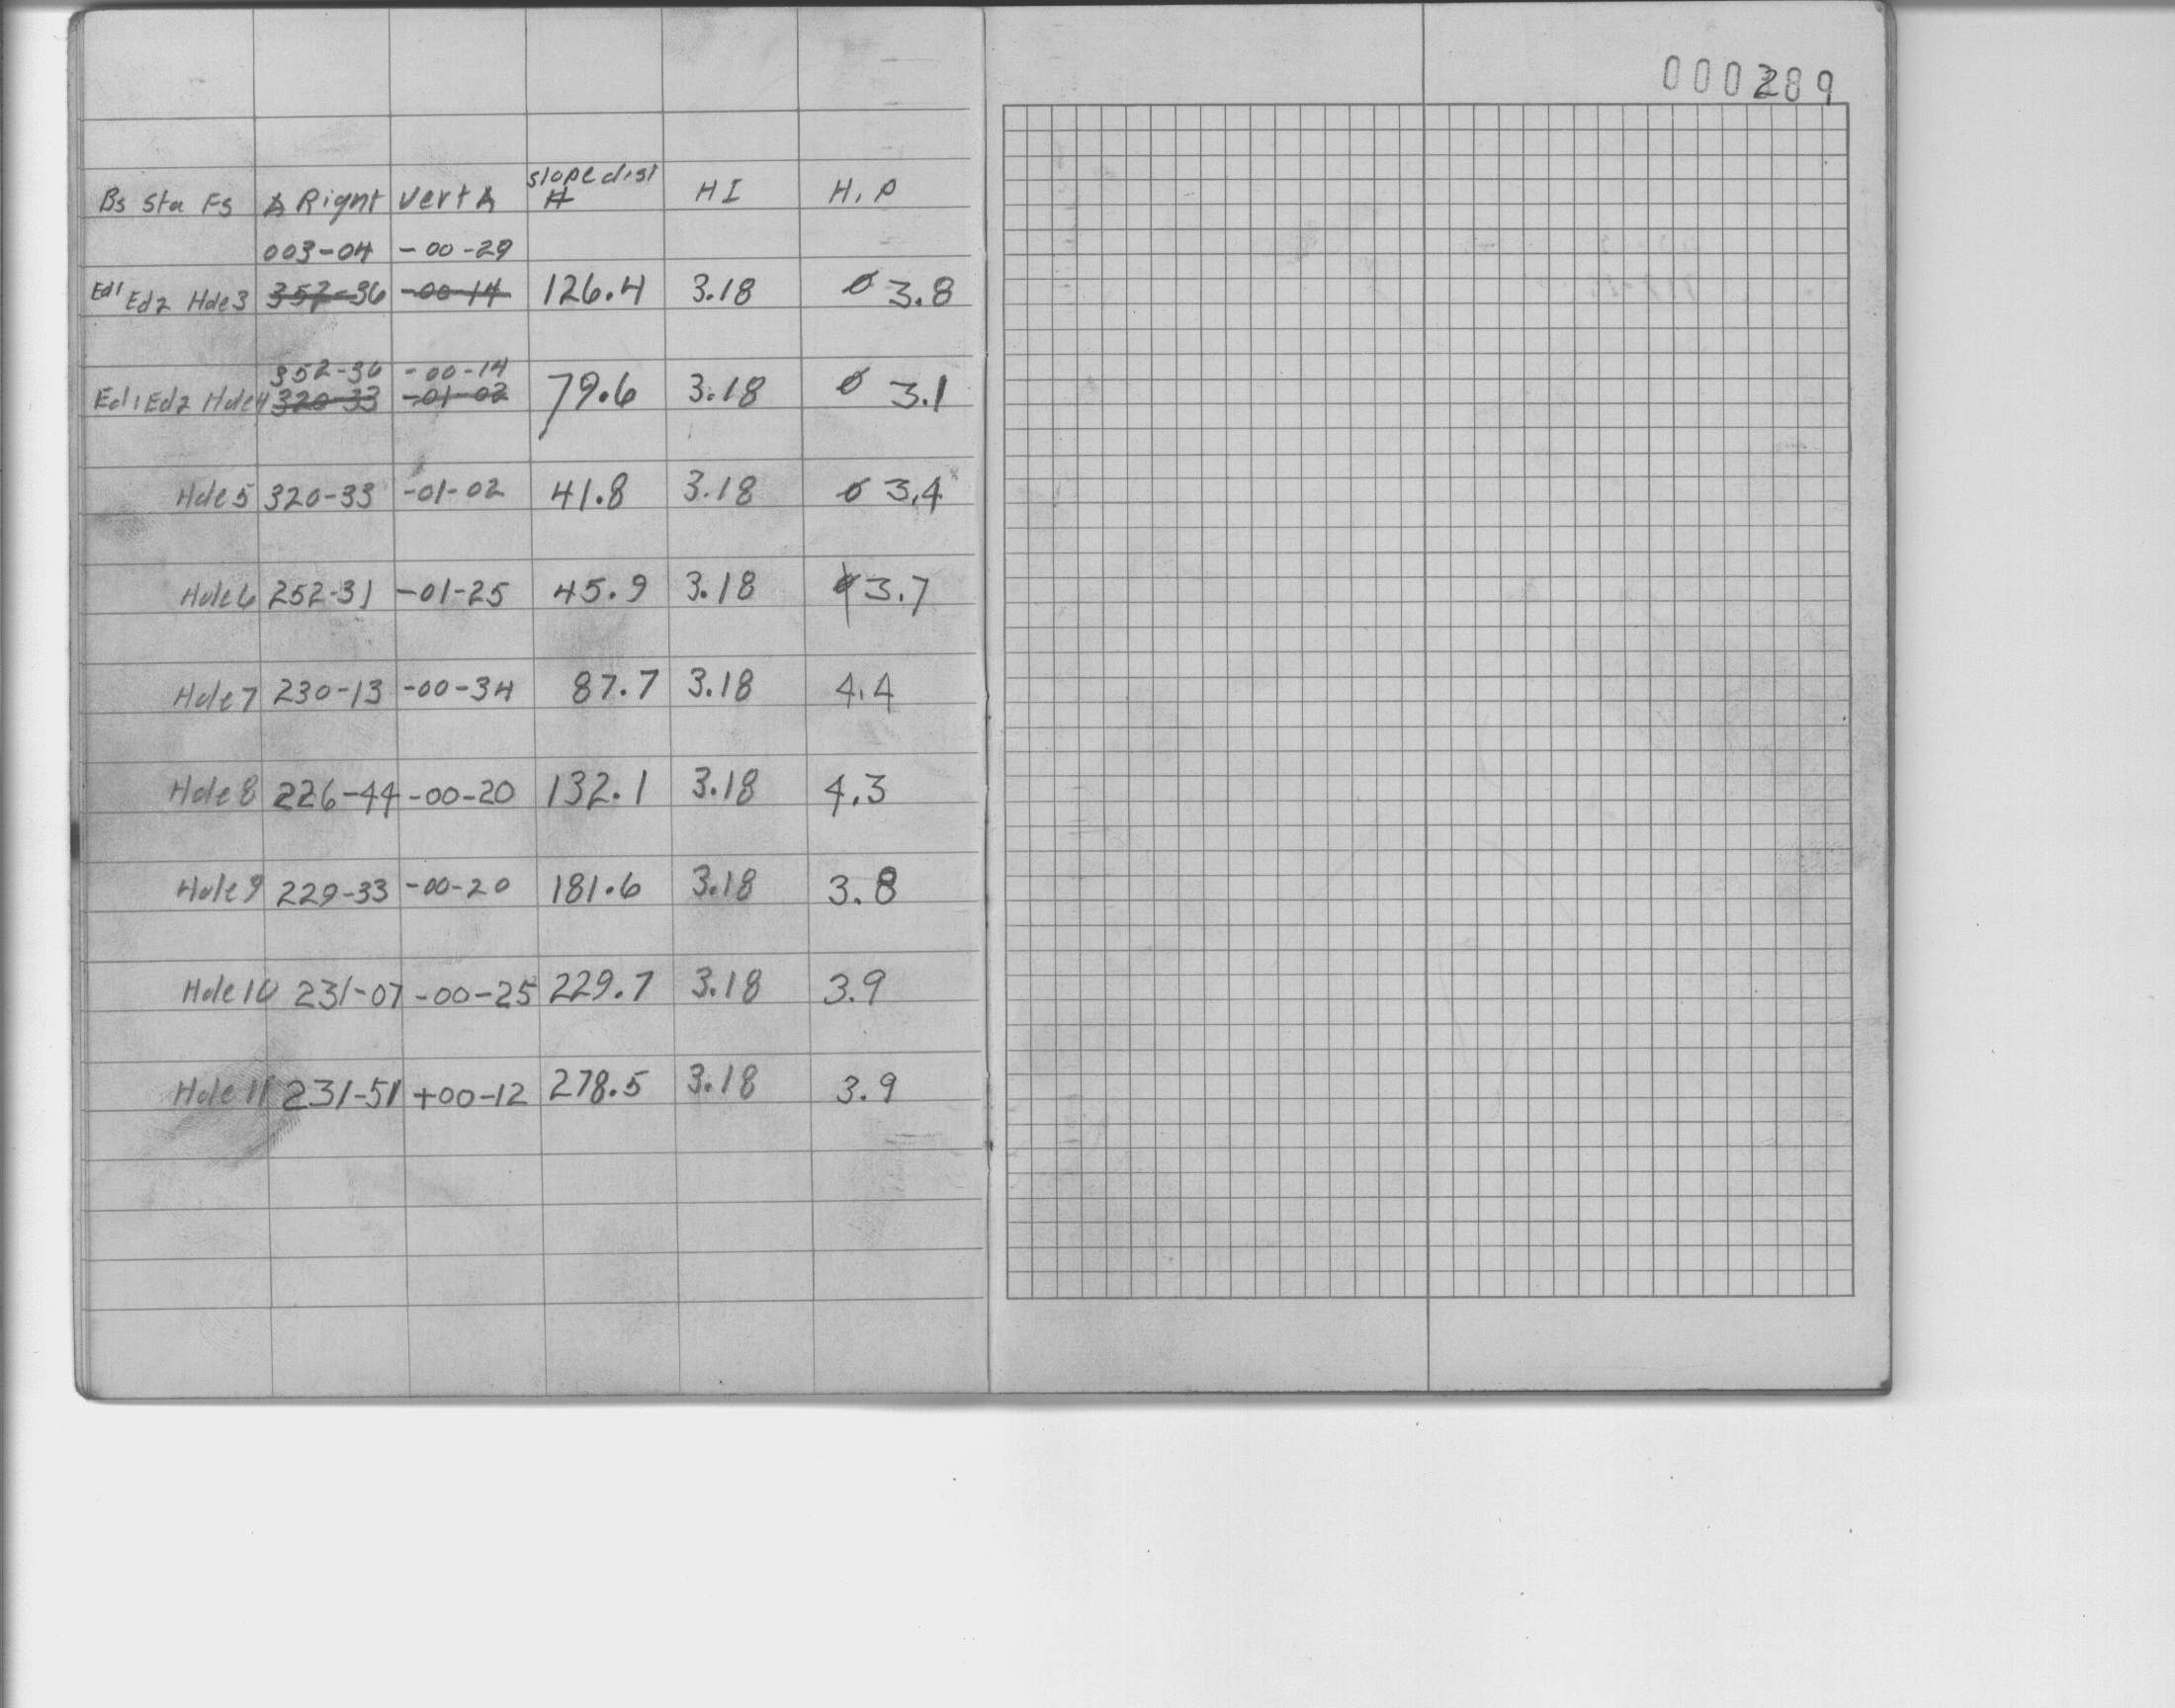 000289
slope dist
Bs Sta Fs ∆ Right Vert ∆ H HI H.P
003-04 -00-29
Ed1 Ed2 Hole 3 352-36 -00-14 126.4 3.18 0 3.8
352-36 -00-14
Ed1 Ed2 Hole 4 320-33 -01-02 79.6 3.18 0 3.1
Hole 5 320-33 -01-02 41.8 3.18 0 3.4
Hole 6 252-31 -01-25 45.9 3.18 0 3.7
Hole 7 230-13 -00-34 87.7 3.18 4.4
Hole 8 226-44 -00-20 132.1 3.18 4.3
Hole 9 229-33 -00-20 181.6 3.18 3.8
Hole 10 231-07 -00-25 229.7 3.18 3.9
Hole 11 231-51 +00-12 278.5 3.18 3.9